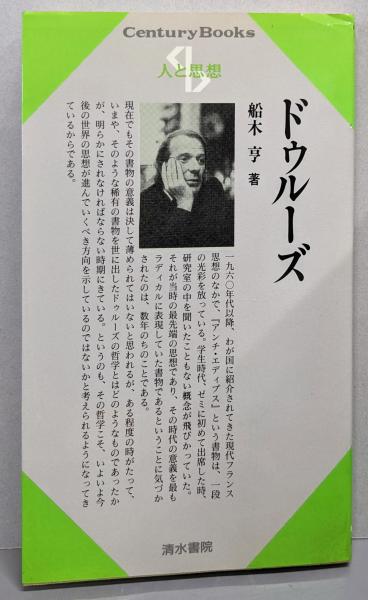 CenturyBooks
人と思想
ドゥルーズ
船木 亨 著
一九六〇年代以降、わが国に紹介されてきた現代フランス
思想のなかで、『アンチ・エディプス』という書物は、一段
の光彩を放っている。学生時代、ゼミに初めて出席した時、
研究室の中を聞いたこともない概念が飛びかっていた。
それが当時の最先端の思想であり、その時代の意義を最も
ラディカルに表現していた書物であるということに気づか
されたのは、数年のちのことである。
現在でもその書物の意義は決して薄められてはいないと思われるが、ある程度の時がたって、
いまや、そのような稀有の書物を世に出したドゥルーズの哲学とはどのようなものであったか
が、明らかにされなければならない時期にきている。というのも、その哲学こそ、いよいよ今
後の世界の思想が進んでいくべき方向を示しているのではないかと考えられるようになってき
ているからである。
清水書院